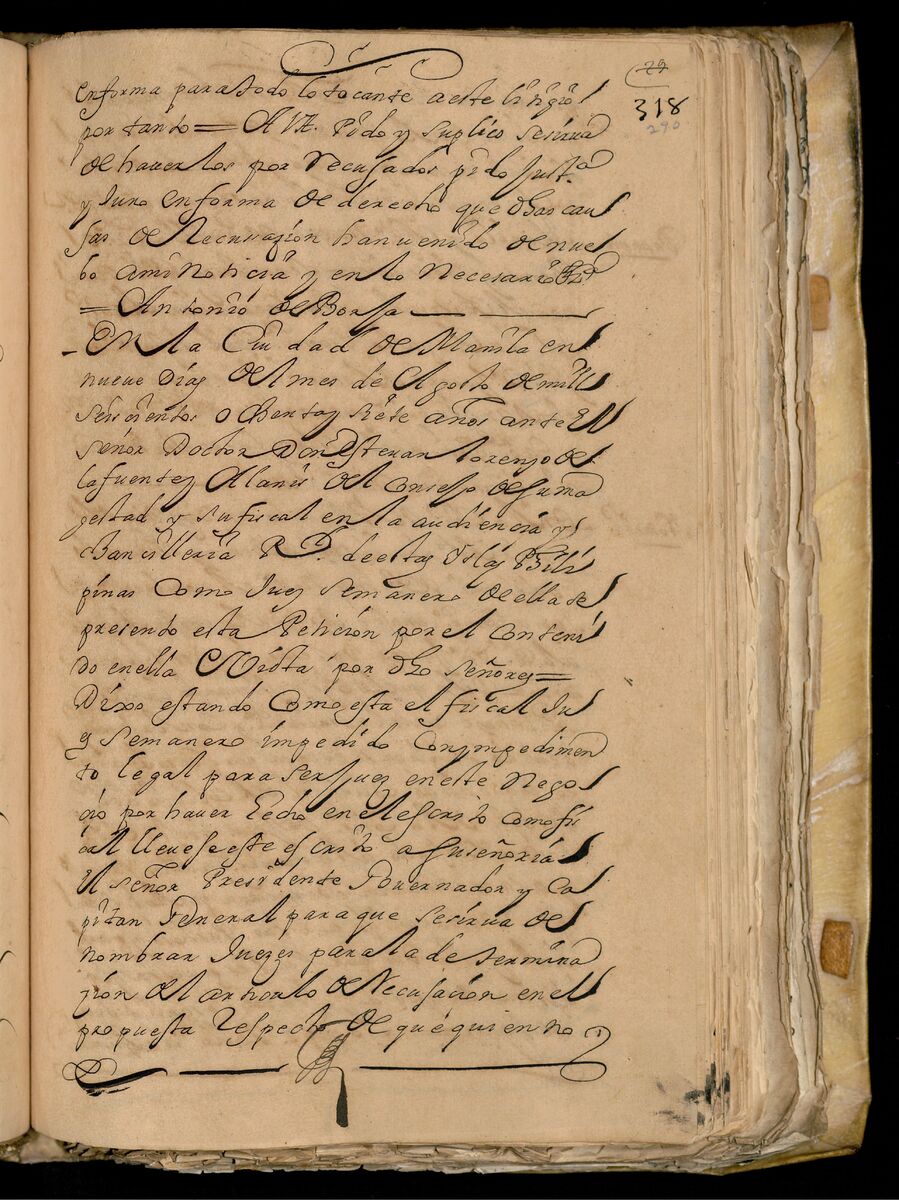 29
318
290
enforma para todo lo tocante a este litigio
por tanto = A Vx.ª Pido y suplico se sirva
de haverlos por Recusados pido just.ª
y Juro enforma de derecho que dhas cau
sas de Recusazion han uenido de nue
bo a mi Noticia y en lo Necesario &.ª
= Antonio de Borja
En la Ciudad de Manila en
nueue Dias del mes de Agosto de mill
seiscientos ochenta y siete años ante el
señor Doctor Don Esteuan lorenzo de
la fuente y Alanis del Consejo de su ma
gestad y su fiscal en la audiencia y
chancilleria R.l de estas Yslas Phili
pinas Como Juez Semanero de ella se
presento esta Peticion por el Conteni
do en ella Y Vista por dho señor =
Dixo estando Como esta el fiscal Ju
ez Semanero impedido Con ympedimen
to legal para ser Juez en este Nego
zio por haver hecho en el escrito como fis
cal lleuese este escrito a su señoria
el señor Presidente Gouernador y Ca
pitan General para que se sirua de
nombrar Juezes para la determina
zion del articulo de Recusacion en el
propuesta Respecto de que quien no